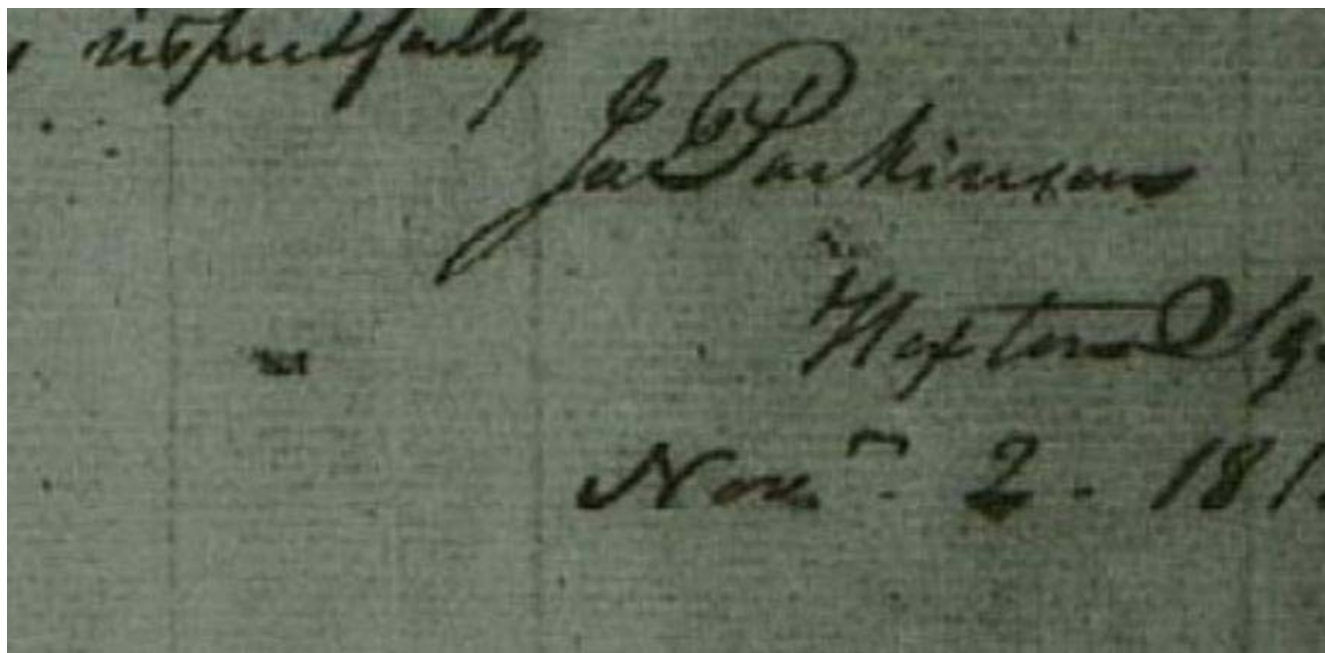 respectfully
Jas Parkinson
Hoxton Sq
Novr. 2 - 181